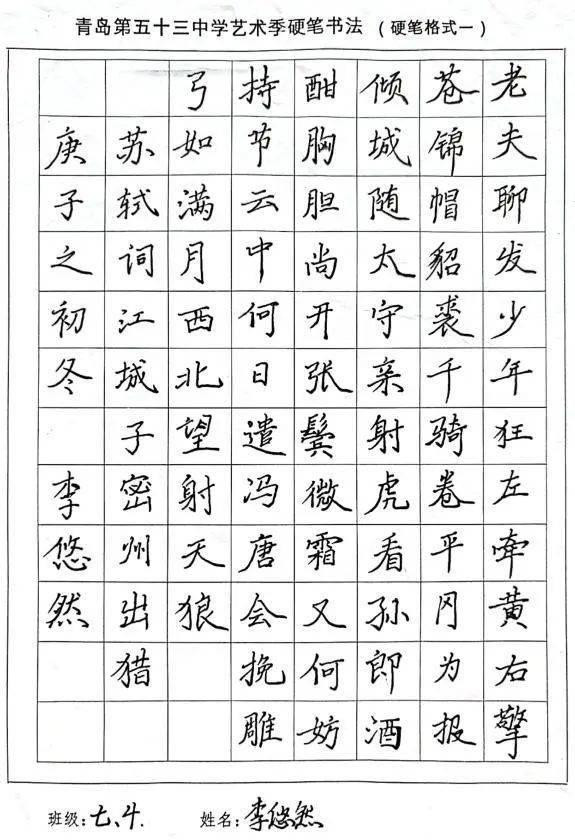 青岛第五十三中学艺术季硬笔书法 (硬笔格式一)
老夫聊发少年狂左牵黄右擎
苍锦帽貂裘千骑卷平冈为报
倾城随太守亲射虎看孙郎酒
酣胸胆尚开张鬓微霜又何妨
持节云中何日遣冯唐会挽雕
弓如满月西北望射天狼
苏轼词江城子密州出猎
庚子之初冬 李悠然
班级:七、4. 姓名:李悠然